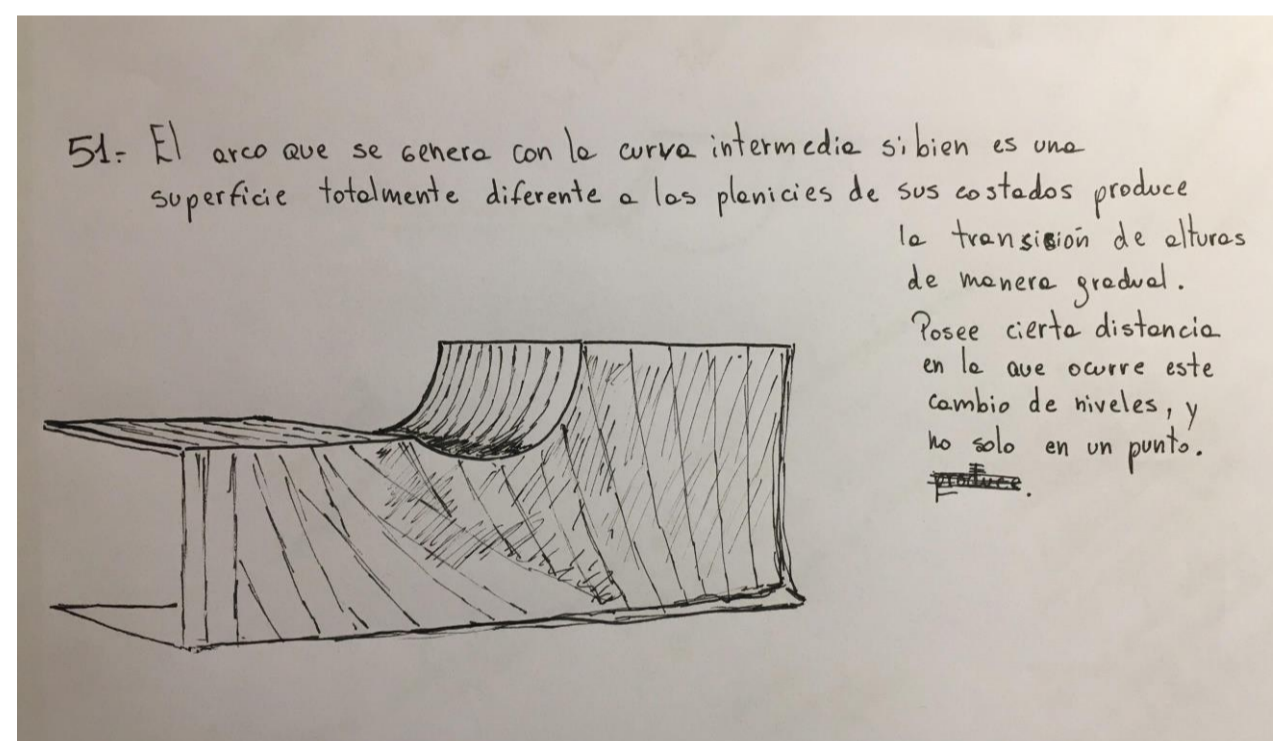 51.- El arco que se genera con la curva intermedia si bien es una
superficie totalmente diferente a las planicies de sus costados produce
la transición de alturas
de manera gradual.
Posee cierta distancia
en la que ocurre este
cambio de niveles, y
no solo en un punto.
produce.